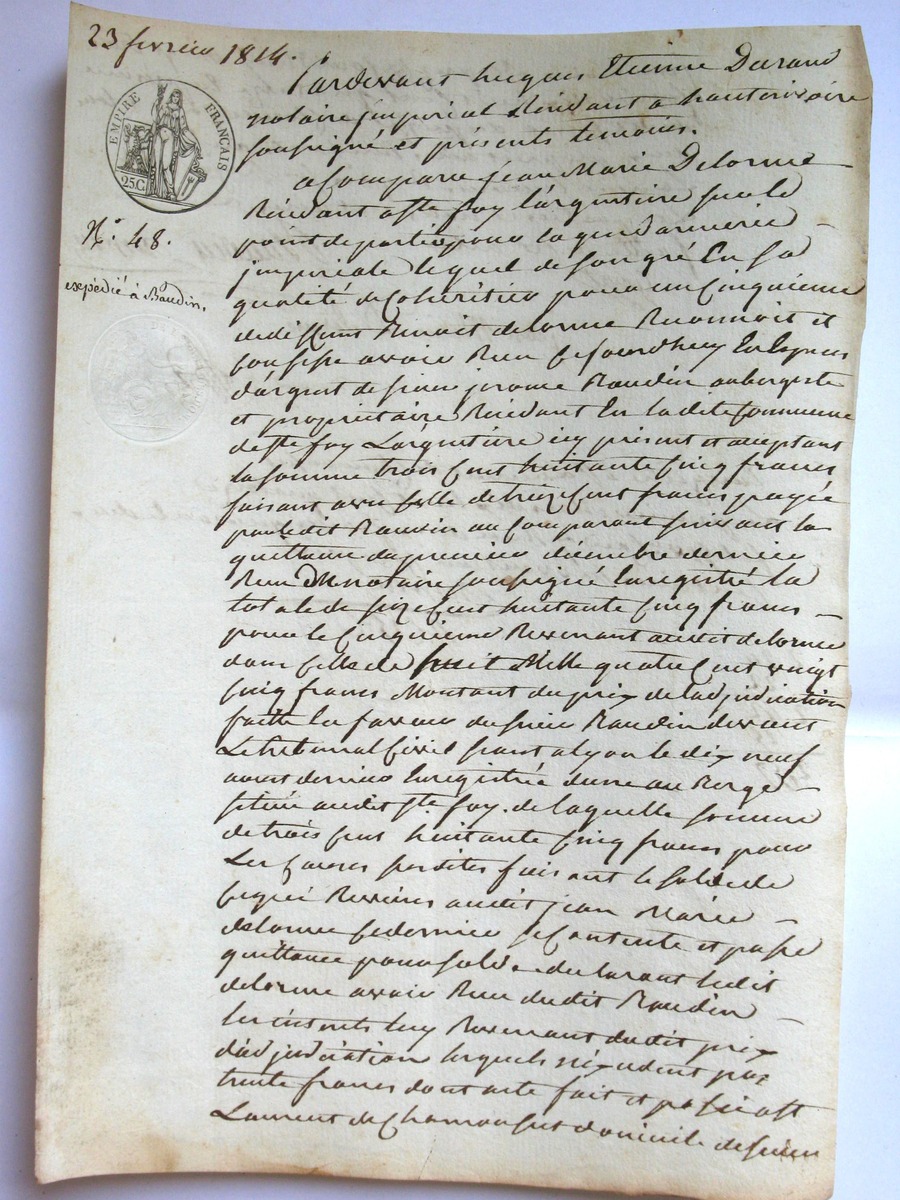 23 fevrier 1814.
EMPIRE FRANCAIS
25C
No. 48.
expédié à Baudin.
Pardevant hugues Etienne Durand
notaire jmperial Residant a hauterivoire
soussigné et présents temoins.
a Comparu jean Marie Delorme
Residant a Ste foy l'argentiere sur le
point de partir pour la gendarmerie
jmperiale lequel de son gré En sa
qualité de Coheritier pour un Cinquieme
de deffunt Benoit delorme Reconnoit et
Confesse avoir Reçu Cejourdhuy En Especes
d'argent de sieur jerome Baudin aubergiste
et propriétaire Residant En la dite Commune
de Ste foy Largentiere icy présent et acceptant
la somme trois Cent huitante Cinq francs
faisant avec Celle de treize Cent francs payée
par ledit Baudin au Comparant suivant la
quittance du premier décembre dernier
Reçu Dt notaire soussigné Enregistré la
totale de seize Cent huitante Cinq francs
pour le Cinquieme Revenant audit delorme
dans Celle de huit Mille quatre Cent vingt
Cinq francs Montant du prix de l'adjudication
faitte En faveur du sieur Baudin devant
Le tribunal Civil séant a lyon le dix neuf
aoust dernier Enregistrée
située audit Ste foy. de laquelle somme
de trois Cent huitante Cinq francs pour
Les Causes susdites faisant le solde de
Ce qui Revient audit jean Marie
delorme Ce dernier se Contente et passe
quittance pour solde declarant ledit
delorme avoir Reçu dudit Baudin
les interets luy Revenant dudit prix
d'adjudication lesquels n'éxcedent pas
trente francs dont acte fait et passé a St
Laurent de Chamousset domicile de sieur